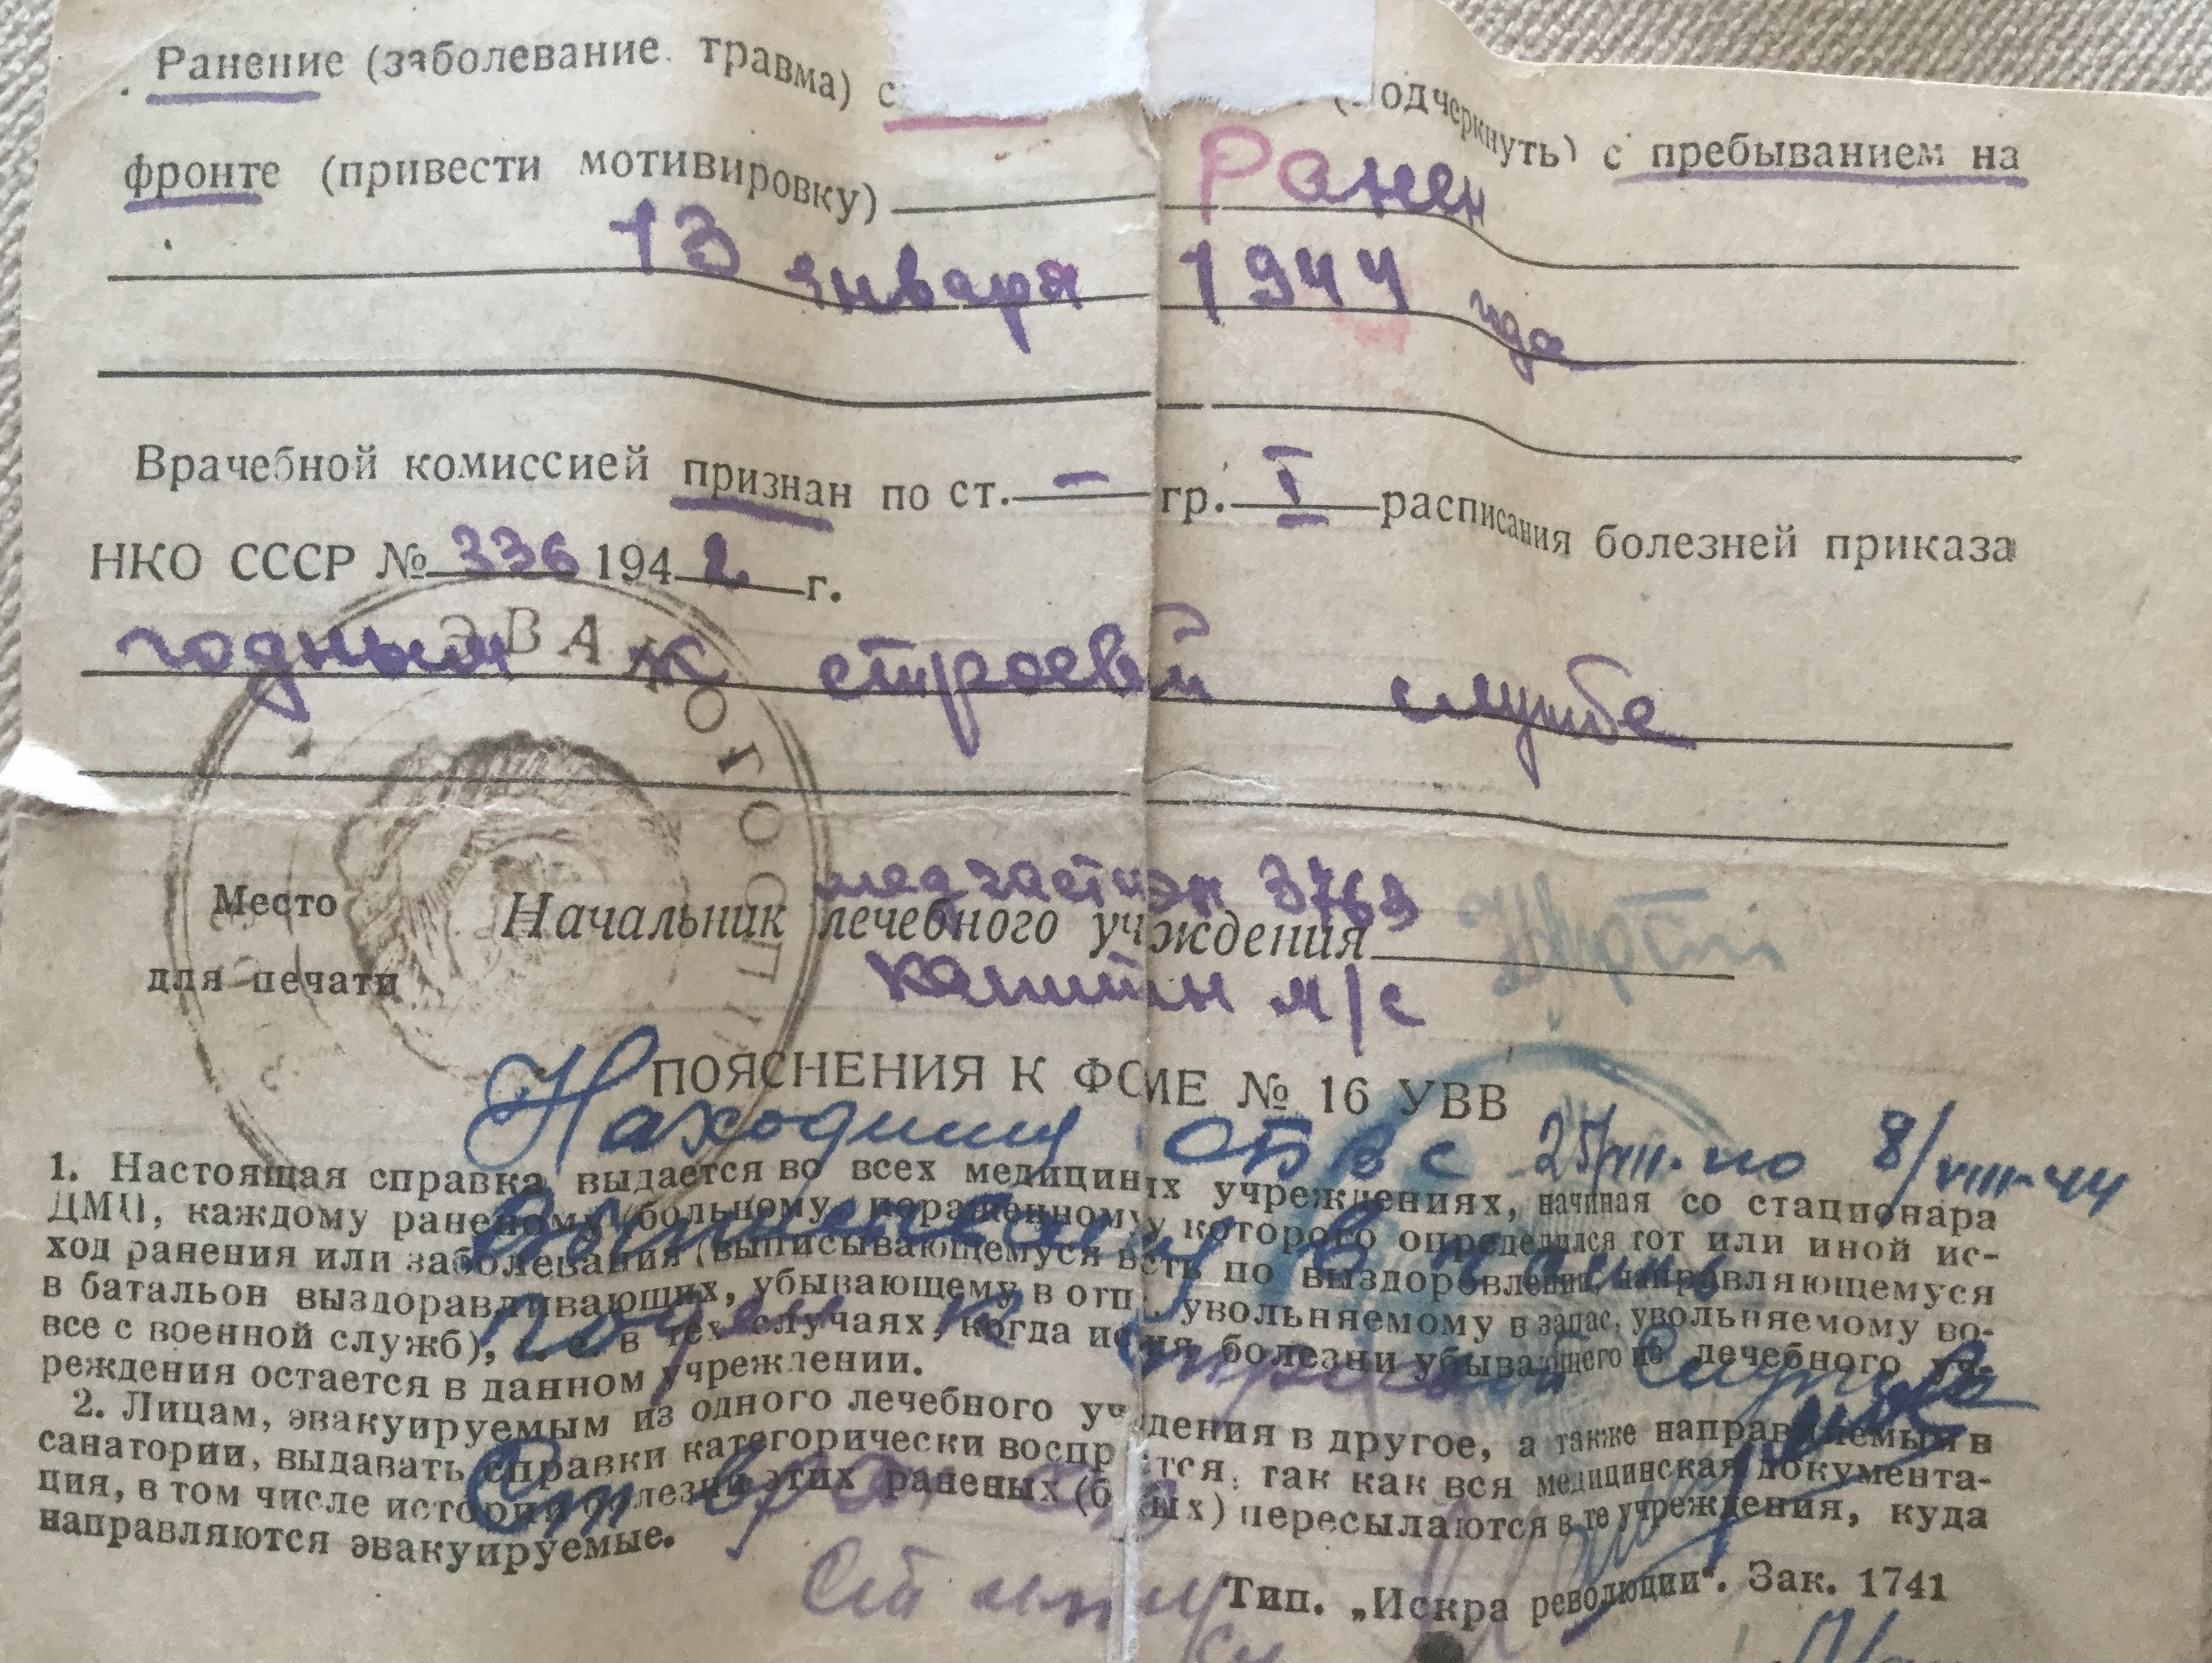 Ранение (заболевание, травма) с (подчеркнуть) с пребыванием на
фронте (привести мотивировку) Ранен
13 января 1944 года
Врачебной комиссией признан по ст. — гр. I расписания болезней приказа
НКО СССР № 336 1942 г.
годным к строевой службе
ЭВАКОГОСПИ
3763
Место Начальник лечебного учждения
для печати капитан м/с
ПОЯСНЕНИЯ К ФОМЕ № 16 УВВ
Находился ОПВ с 25/VII. по 8/VIII-44
1. Настоящая справка выдается во всех медициних учреждениях, начиная со стационара
ДМП, каждому раненому (больному, пораженному, которого определился тот или иной ис-
ход ранения или заболевания (выписывающемуся в сть по выздоровлении, направляющемуся
в батальон выздоравливающих, убывающему в отп, увольняемому в запас, увольняемому во-
все с военной служб), т. е. в тех случаях, когда ия болезни убывающего из лечебного уч-
реждения остается в данном учреждении.
Годен к строевой службе
2. Лицам, эвакуируемым из одного лечебного уч дения в другое, а также направляемым в
санатории, выдавать справки категорически воспр тся, так как вся медицинская документа-
ция, в том числе истории болезни этих раненых (б ых) пересылаются в те учреждения, куда
направляются эвакуируемые.
Ст врач
Тип. „Искра революции“. Зак. 1741